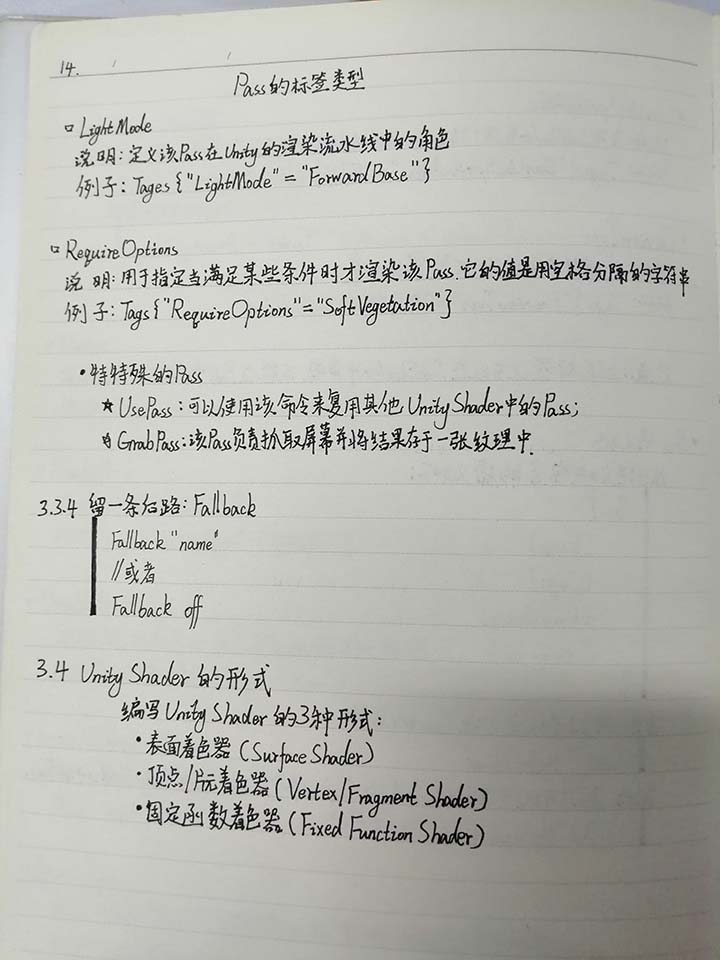 14.
Pass的标签类型
□ LightMode
说明：定义该Pass在Unity的渲染流水线中的角色
例子：Tages {"LightMode" = "ForwardBase"}
□ RequireOptions
说明：用于指定当满足某些条件时才渲染该Pass.它的值是用空格分隔的字符串
例子：Tags {"RequireOptions"="SoftVegetation"}
•特特殊的Pass
★ UsePass：可以使用该命令来复用其他 Unity Shader中的Pass；
☆ GrabPass：该Pass负责抓取屏幕并将结果存于一张纹理中.
3.3.4 留一条后路：Fallback
Fallback "name"
//或者
Fallback off
3.4 Unity Shader 的形式
编写Unity Shader 的3种形式：
•表面着色器 (Surface Shader)
•顶点/片元着色器 (Vertex/Fragment Shader)
•固定函数着色器 (Fixed Function Shader)